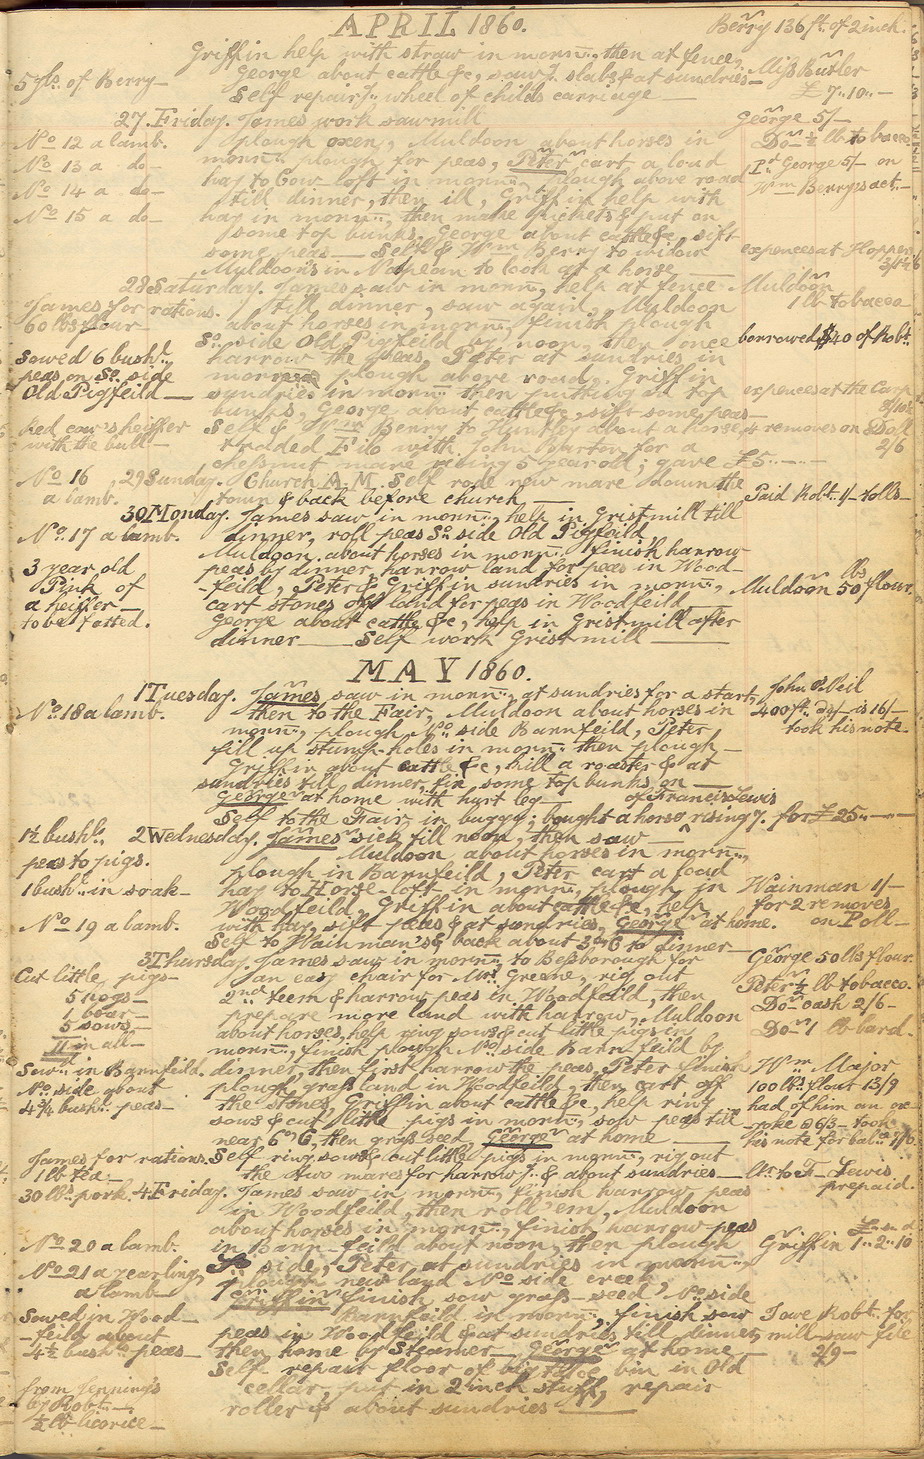 APRIL 1860.
Berry 136 ft. of 2 inch.
Griffin help with straw in morn:, then at fence,
George about cattle &c, saw:g. slabs & at sundries
5 lbs. of Berry
Self repair:g. wheel of childs carriage
Miss Butler
£7..10..-
27. Friday. James work sawmill
George 5/-
No 12 a lamb.
plough oxen, Muldoon about horses in
Do ½ lb tobacco
No 13 a do
morn: plough for peas, Peter cart a load
Pd. George 5/- on
No 14 a do
hay to Cow loft in morn:, plough above road
Wm Berry's act.
till dinner, then ill, Griffin help with
No 15 a do
hay in morn:, then make pickets & put on
some top bunks, George about cattle &c, sift
some peas — Self & Wm Berry to widow
expences at Hopper
Muldoon's in Napean to look at a horse
28 Saturday. James saw in morn:, help at fence
Muldoon
James for rations.
till dinner, saw again, Muldoon
1 lb tobacco
60 lbs flour
about horses in morn: finish plough
So. side Old Pigfeild by noon, then once
borrowed $40 of Robt.
Sowed 6 bush:l.
harrow the peas, Peter at sundries in
peas on So. side
morn: plough above road. Griffin
Old Pigfeild
sundries in morn: then putting on top
expences at the Carp
bunks, George about cattle &c, sift some peas
Red cow's heiffer
Self & Wm Berry to Huntley about a horse,
4 removes on Doll
with the bull
traded Filo with John Burton for a
2/6
chesnut mare rising 5 year old; gave £5..-..-
No 16
29 Sunday. Church A.M. Self rode new mare down the
a lamb.
town & back before church
Paid Robt. 1/- tolls
30 Monday. James saw in morn: help in Gristmill till
No. 17 a lamb.
dinner, roll peas So. side Old Pigfeild,
Muldoon about horses in morn: finish harrow
3 year old
peas by dinner, harrow land for peas in Wood-
Pink of
-feild, Peter & Griffin sundries in morn:,
Muldoon 50 lbs flour.
a heiffer
cart stones off land for peas in Woodfeild
to be fatted.
George about cattle &c, help in Gristmill after
dinner — Self work Gristmill
MAY 1860.
1 Tuesday. James saw in morn:, at sundries for a start,
John O'Neil
No. 18 a lamb.
then to the Fair, Muldoon about horses in
400 ft. 2d/- is 16/-
morn:, plough No. side Barnfeild, Peter
took his note
fill up stump-holes in morn: then plough
Griffin about cattle &c, kill a roaster & at
sundries till dinner, fix some top bunks on
George at home with hurt leg
of Francis Lewis
Self to the Fair in buggy; bought a horse rising 7. for £25..-..-
1½ bush:l.
2 Wednesday. James sick till noon, then saw
peas to pigs.
Muldoon about horses in morn:,
plough in Barnfeild, Peter cart a load
1 bush: in soak
hay to Horse-loft in morn:, plough in
Wainman 1/-
Woodfeild, Griffin about cattle &c, help
for 2 removes
No 19 a lamb.
with hay, sift peas & at sundries, George at home.
on Poll
Self to Wainman's & back about 3 to dinner
3 Thursday. James saw in morn: to Bessborough for
George 50 lbs flour.
Cut little pigs
Jan easy chair for Mrs. Greene, rig out
Peter ½ lb tobacco.
5 hogs
2nd teem & harrow peas in Woodfeild, then
Do cash 2/6
1 boar
prepare more land with harrow, Muldoon
5 sows
about horses, help ring sows & cut little pigs in
Do 1 lb lard.
11 in all
morn:, finish plough No. side Barn feild by
Sow: in Barnfeild.
dinner, then first harrow the peas, Peter finish
Wm Major
No. side about
plough grass land in Woodfeild, then cart off
100 lbs. flour 13/9
4¾ bush: peas
the stones, Griffin about cattle &c, help ring
had of him an ox
sows & cut little pigs in morn:, sow peas till
-yoke @ 6/3 took
near 6, then grass seed, George at home
his note for bal:ce 7/6
James for rations.
Self ring sows & cut little pigs in morn:, rig out
1 lb tea
the two mares for harrow:g. & about sundries
Lewis
30 lbs. pork.
4 Friday. James saw in morn:, finish harrow peas
prepaid.
in Woodfeild, then roll 'em, Muldoon
about horses in morn:, finish harrow peas
£ s d
No 20 a lamb.
in Barn-feild about noon, then plough
Griffin 1..2..10
So side, Peter at sundries in morn:,
No 21 a yearling
plough new land No side creek,
a lamb
Griffin finish sow grass-seed No. side
Barnfeild in morn:, finish sow
I owe Robt. for
Sowed in Wood-
peas in Woodfeild & at sundries till dinner,
mill-saw file
-feild about
4½ bush: peas
then home by Steamer, George at home
2/9
Self repair floor of big bin in Old
from Jenning's
cellar, put in 2 inch stuff, repair
by Robt.
roller & about sundries
½ lb licorice